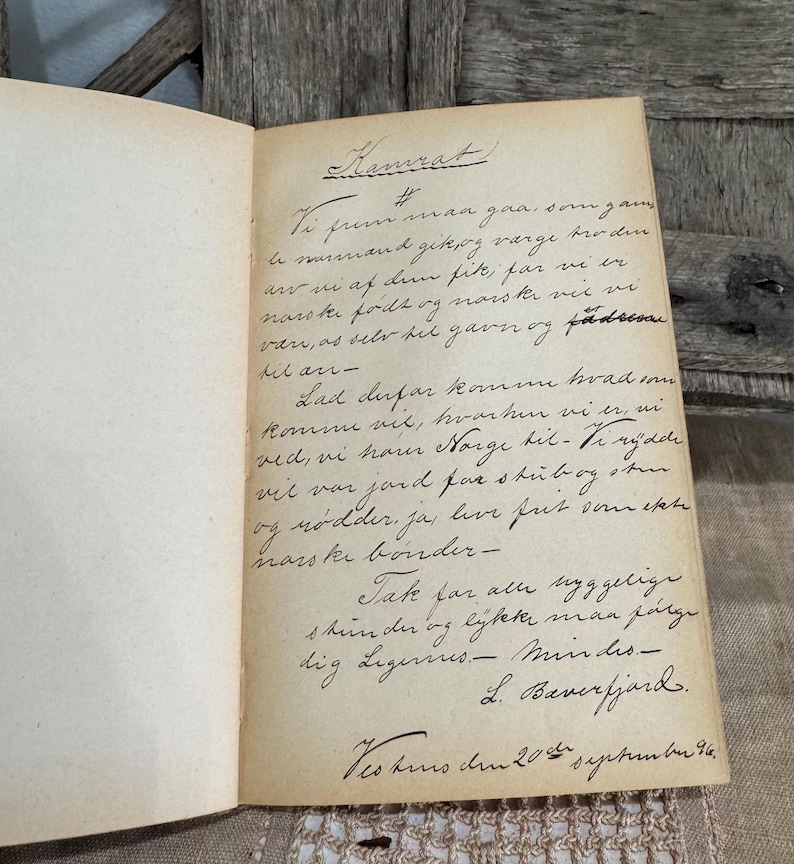 Kamrat
#
Vi frem maa gaa, som gam
le normænd gik, og værge tro den
arv vi af dem fik, for vi er
norske født og norske vil vi
være, os selv til gavn og fædrene
til ær—
Lad derfor komme hvad som
komme vil, hvorhen vi er, vi
ved, vi hører Norge til— Vi rydde
vil vor jord for stub og sten
og rødder, ja, leve frit som ekte
norske bønder—
Tak for alle hyggelige
stunder og lykke maa følge
dig — Mindes.—
L. Bæverfjord.
den 20de september 96.